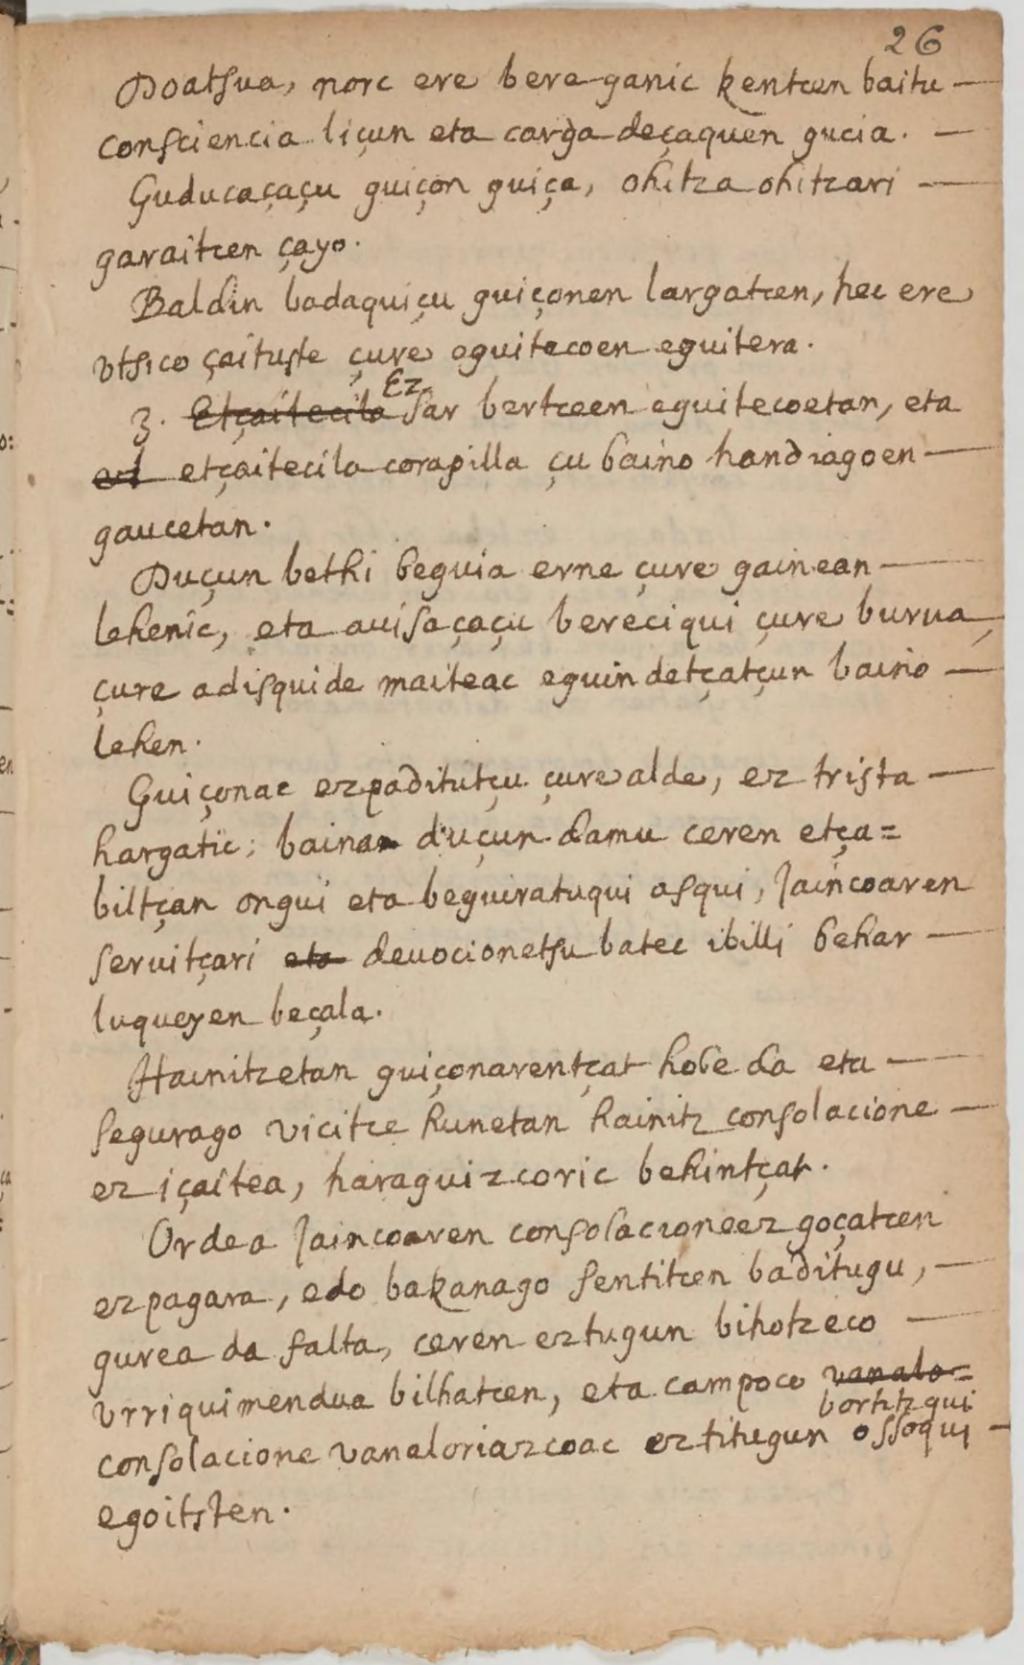 26
Doatsua, norc ere bere ganic kentcen baitu —
consciencia liçun eta carga deçaquen gucia. —
Guducaçaçu guiçon guiça, ohitza ohitzari —
garaitcen çayo.
Baldin badaquiçu guiçonen largatcen, hec ere
vtsico çaituste çure eguitecoen eguitera.
3. Etçaitecila Ez sar bertceen eguitecoetan, eta
etçaitecila corapilla çu baino handiagoen —
gaucetan.
Duçun bethi beguia erne çure gainean —
lehenic, eta auisaçaçu bereciqui çure burua,
çure adisquide maiteac eguin detçatçun baino —
lehen.
Guiçonac ezpaditutçu çure alde, ez trista —
hargatic; baina duçun damu ceren etça=
biltçan ongui eta beguiratuqui asqui, Jaincoaren
seruitçari eta deuocionetsu batec ibilli behar —
luqueyen beçala.
Hainitzetan guiçonarentçat hobe da eta —
segurago vicitce hunetan hainitz consolacione —
ez içaitea, haraguizcoric behintçat.
Ordea Jaincoaren consolacioneez goçatcen
ezpagara, edo bakanago sentitcen baditugu, —
gurea da falta, ceren eztugun bihotzeco —
vrriquimendua bilhatcen, eta campoco vanalo=
bortitzqui
consolacione vanaloriazcoac eztitugun ossoqui —
egoitsten.